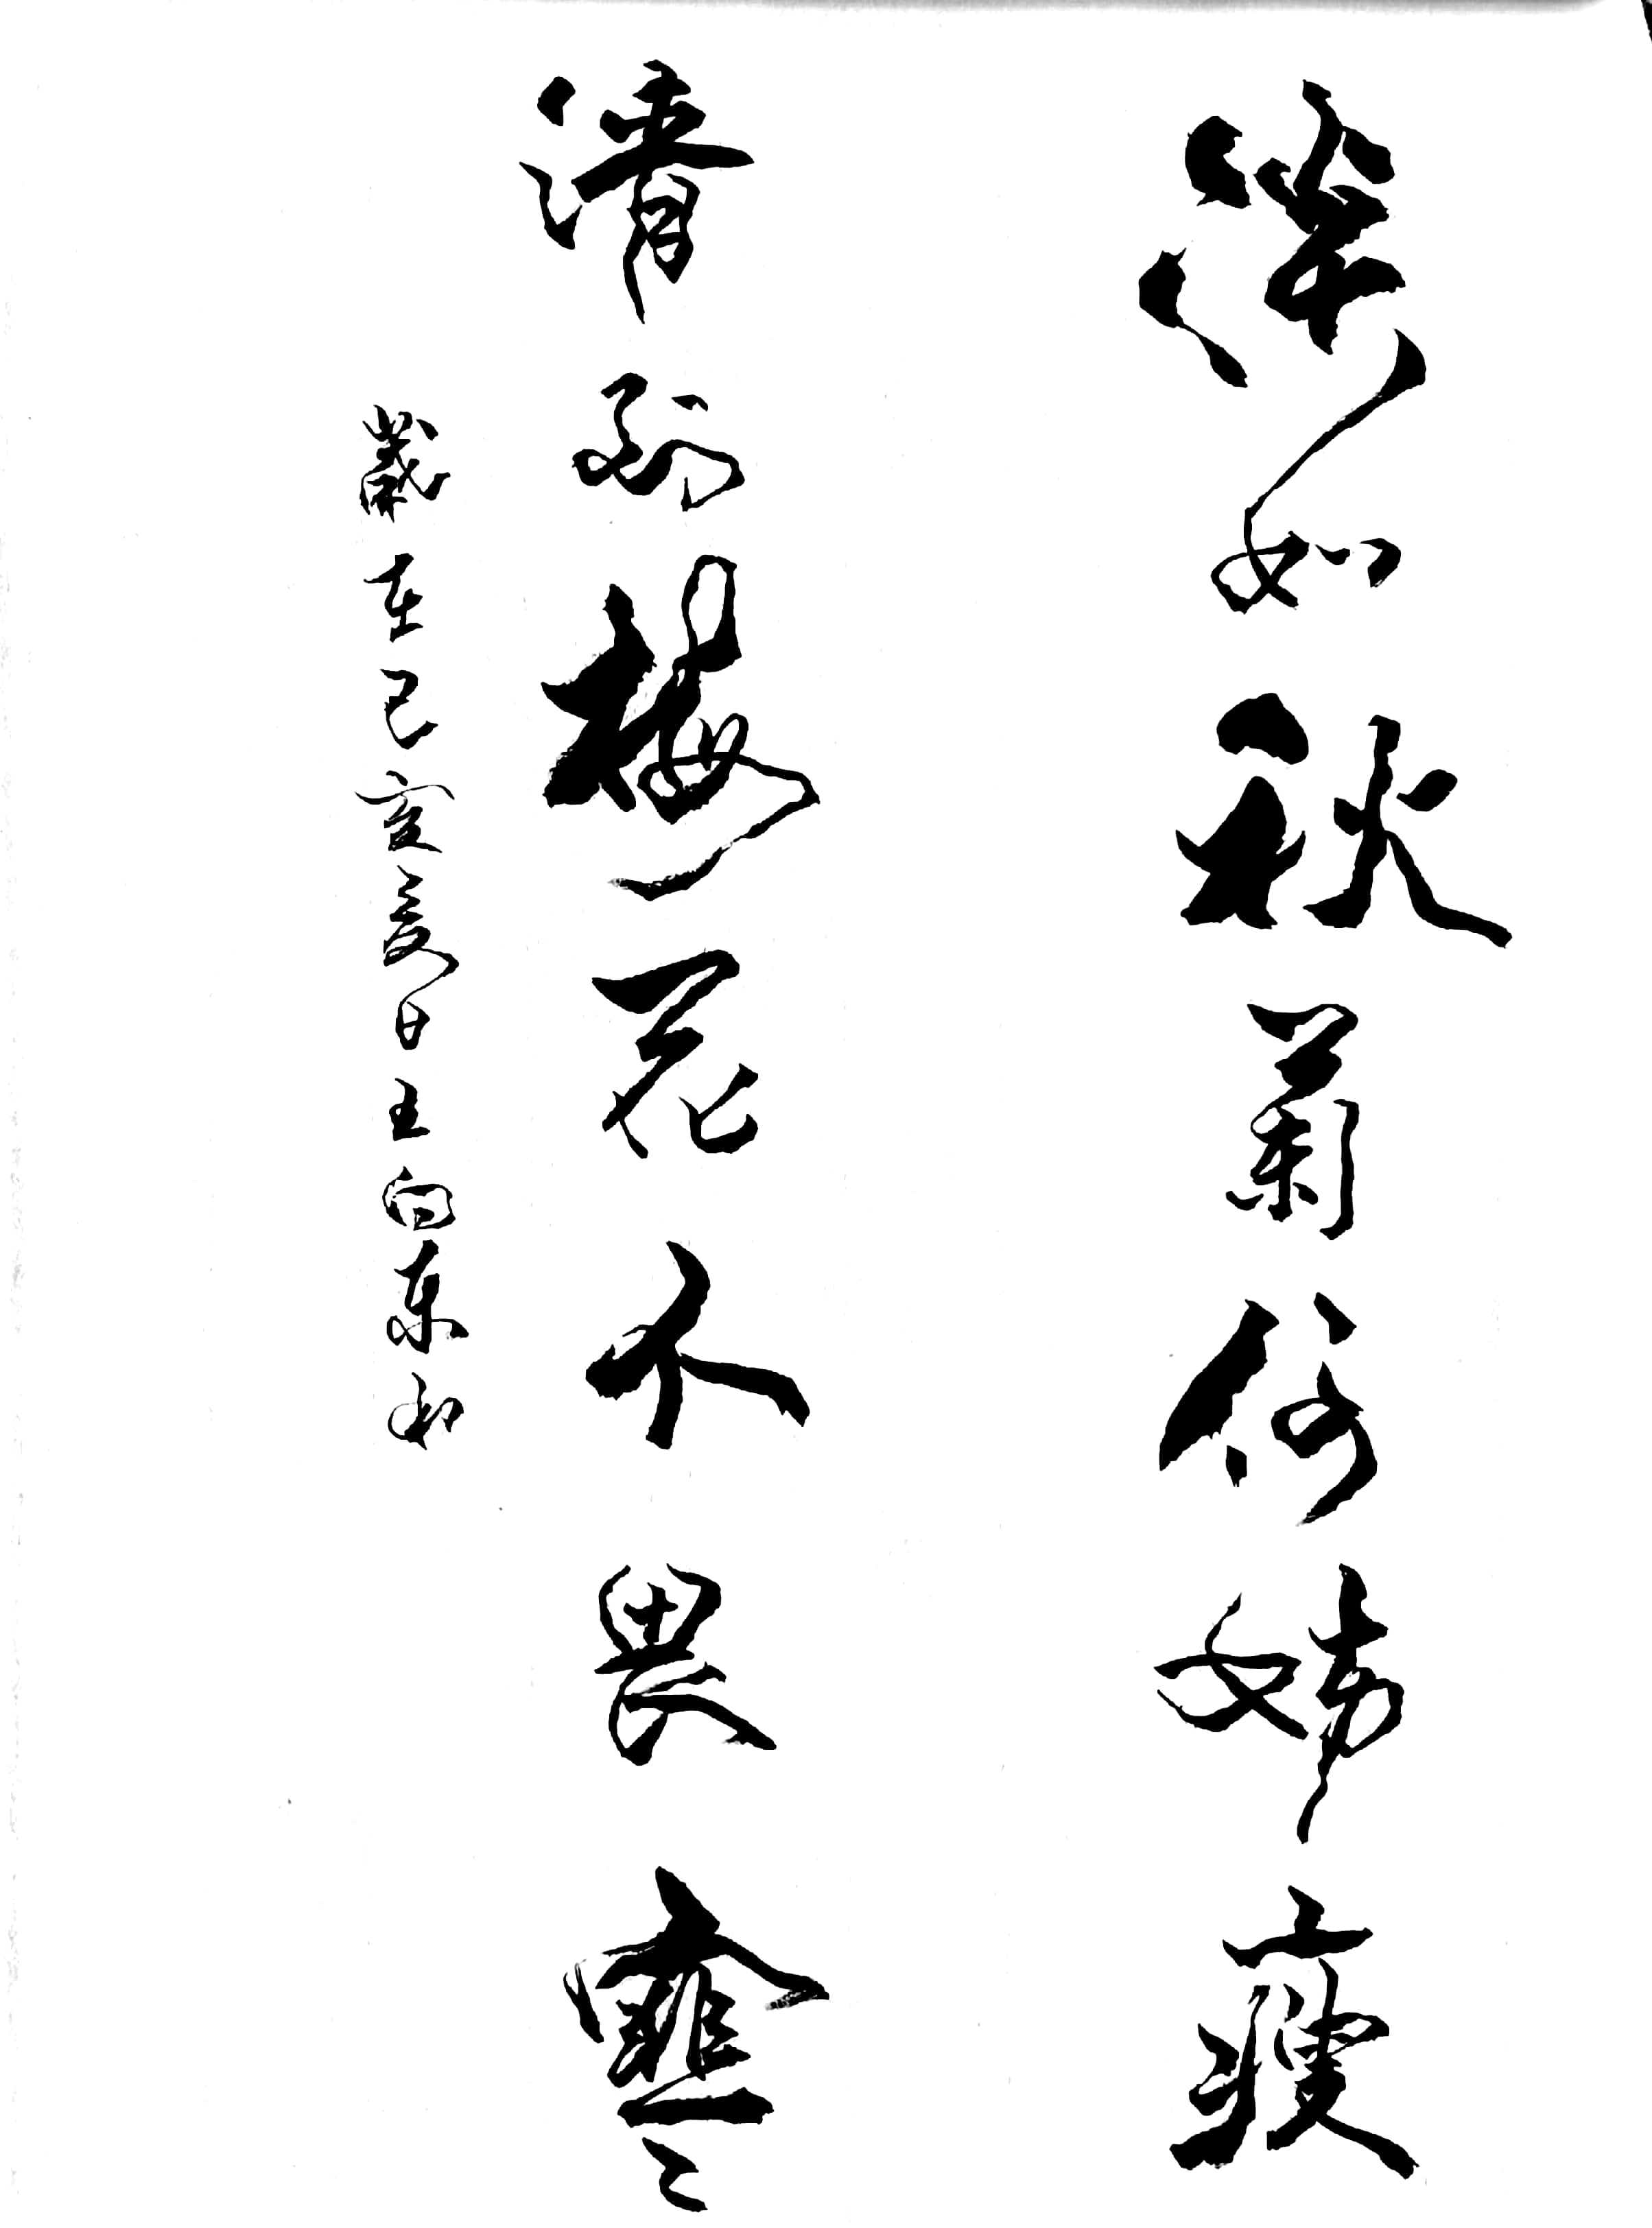 淡如秋菊何妨瘦
清到梅花不畏寒
歲在己亥夏日王向東書